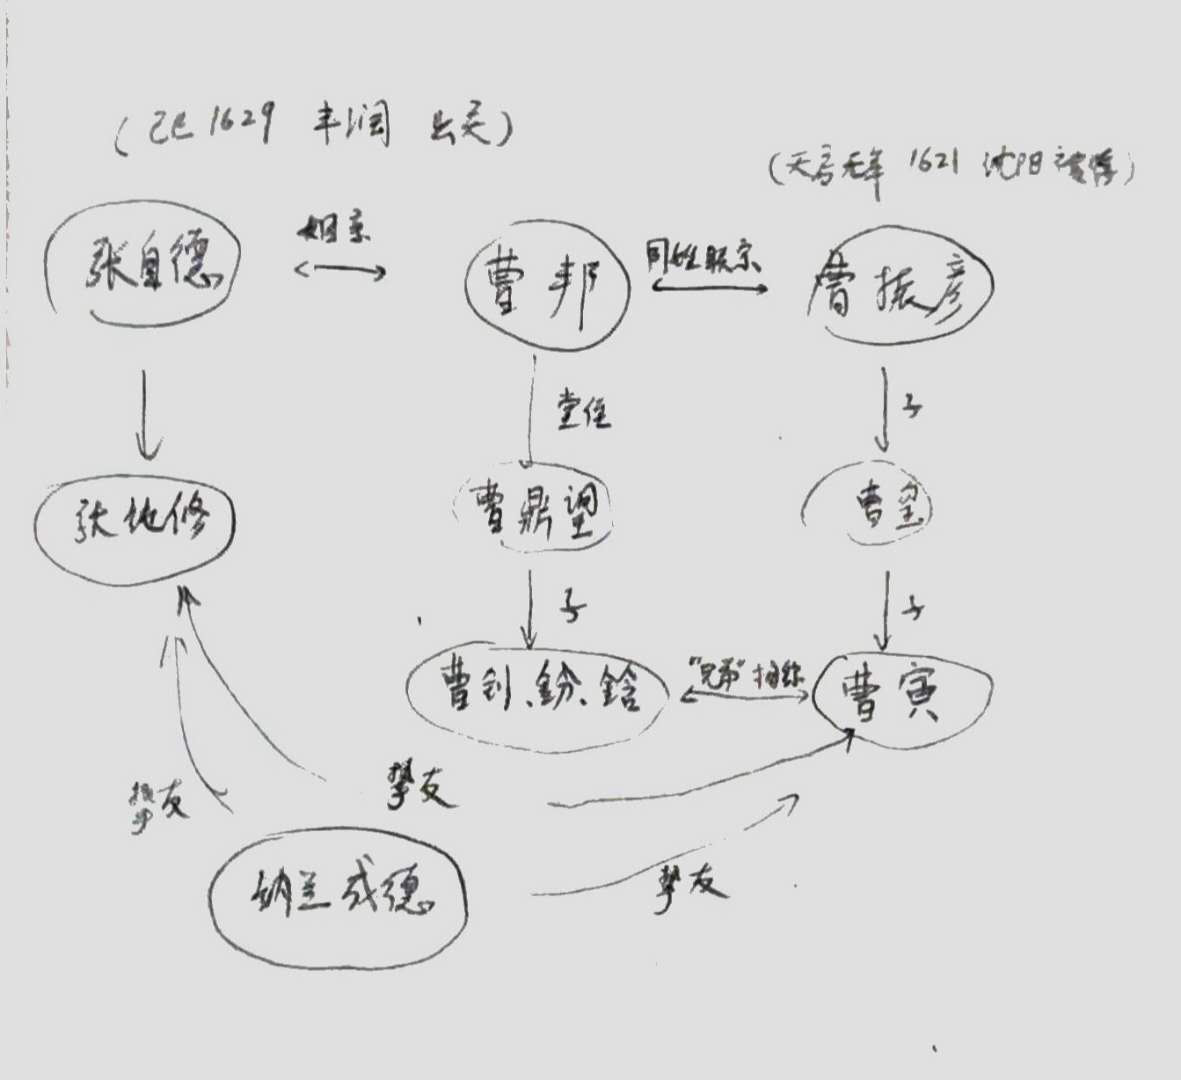 (己巳 1629 丰润 出关)
(天启元年 1621 沈阳被俘)
张自德
姻亲
曹邦
同姓联宗
曹振彦
堂侄
子
张纯修
曹鼎望
曹玺
子
子
曹钊、鈖、鋡
"兄弟"相称
曹寅
挚友
挚友
纳兰成德
挚友